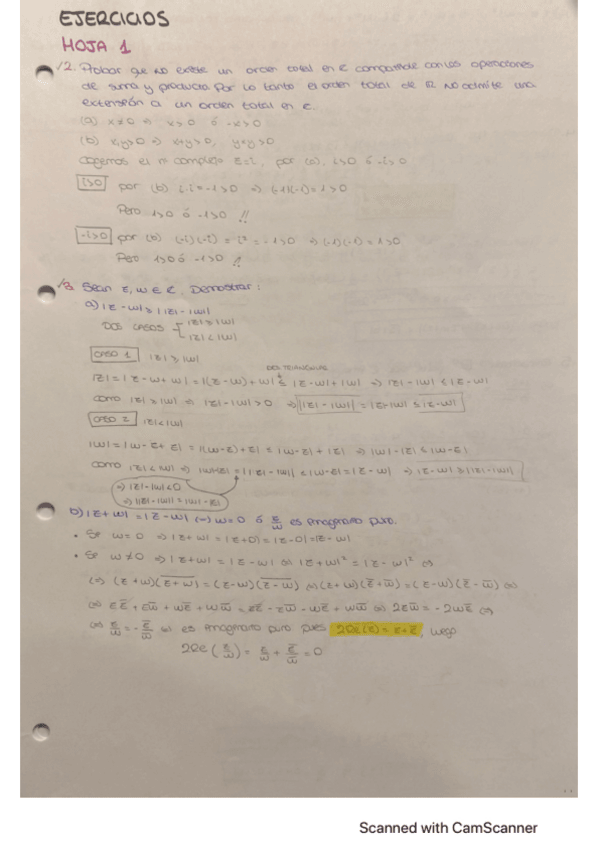 EJERCICIOS
HOJA 1
2. Probar que no existe un orden total en ℂ compatible con las operaciones
de suma y producto. Por lo tanto el orden total de ℝ no admite una
extensión a un orden total en ℂ.
(a) x≠0 ⇒ x>0 ó -x>0
(b) x,y>0 ⇒ x+y>0, y·y>0
Cogemos el nº complejo z=i, por (a), i>0 ó -i>0
i>0 por (b) i·i=-1>0 ⇒ (-1)(-1)=1>0
Pero 1>0 ó -1>0 !!
-i>0 por (b) (-i)(-i)=i²=-1>0 ⇒ (-1)(-1)=1>0
Pero 1>0 ó -1>0 !!
3. Sean z, w ∈ ℂ. Demostrar:
a) |z-w| ≥ ||z|-|w||
DOS CASOS { |z| ≥ |w|
|z| < |w|
CASO 1 |z| ≥ |w|
DES. TRIANGULAR
|z| = |z-w+w| = |(z-w)+w| ≤ |z-w|+|w| ⇒ |z|-|w| ≤ |z-w|
Como |z| ≥ |w| ⇒ |z|-|w| > 0 ⇒ ||z|-|w|| = |z|-|w| ≤ |z-w|
CASO 2 |z|<|w|
|w| = |w-z+z| = |(w-z)+z| ≤ |w-z|+|z| ⇒ |w|-|z| ≤ |w-z|
Como |z|<|w| ⇒ |w|-|z| = ||z|-|w|| ≤ |w-z| = |z-w| ⇒ |z-w| ≥ ||z|-|w||
⇒ |z|-|w| < 0
⇒ ||z|-|w|| = |w|-|z|
b) |z+w| = |z-w| ⟺ w=0 ó z/w es imaginario puro.
• Si w=0 ⇒ |z+w| = |z+0| = |z-0| = |z-w|
• Si w≠0 ⇒ |z+w| = |z-w| ⟺ |z+w|² = |z-w|² ⟺
⟺ (z+w)(z̅+̅w̅) = (z-w)(z̅-̅w̅) ⟺ (z+w)(z̅+w̅) = (z-w)(z̅-w̅) ⟺
⟺ zz̅ + zw̅ + wz̅ + ww̅ = zz̅ - zw̅ - wz̅ + ww̅ ⟺ 2zw̅ = -2wz̅ ⟺
⟺ z/w = - z̅/w̅ ⟺ es imaginario puro pues 2Re(z) = z+z̅, luego
2Re(z/w) = z/w + z̅/w̅ = 0
Scanned with CamScanner